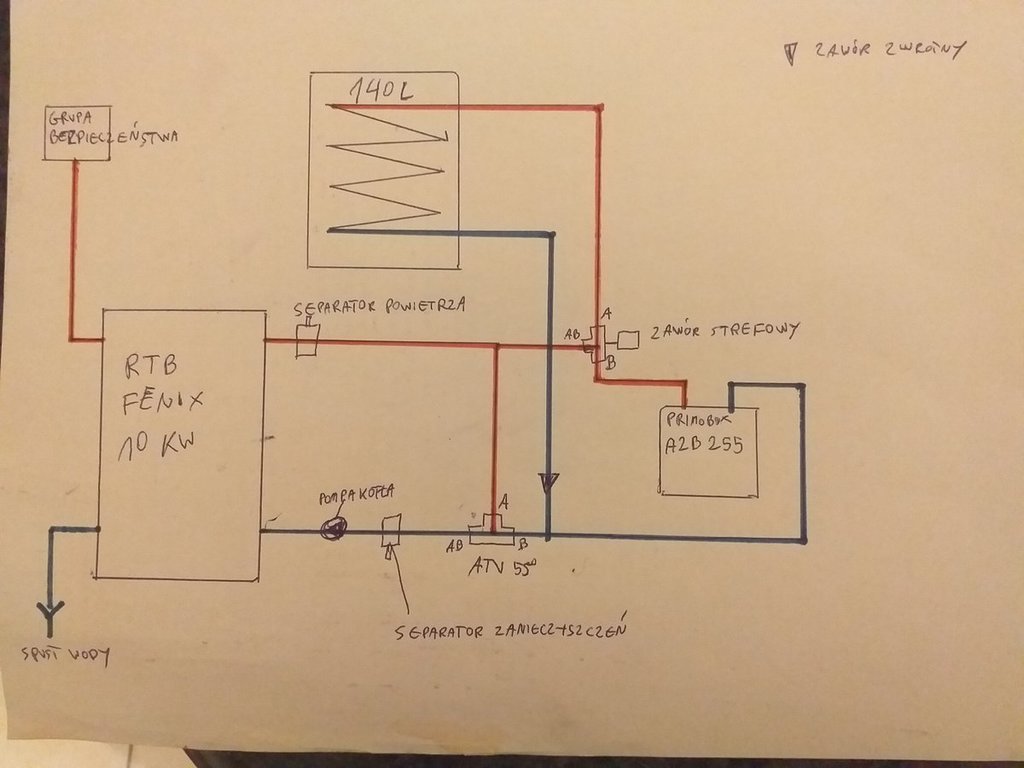 ZAWÓR ZWROTNY
140L
GRUPA
BEZPIECZEŃSTWA
SEPARATOR POWIETRZA
A
AB
ZAWÓR STREFOWY
B
RTB
FENIX
10 KW
PRIMOBOX
AZB 255
POMPA KOTŁA
A
AB
B
ATV 55°
SEPARATOR ZANIECZYSZCZEŃ
SPUST WODY